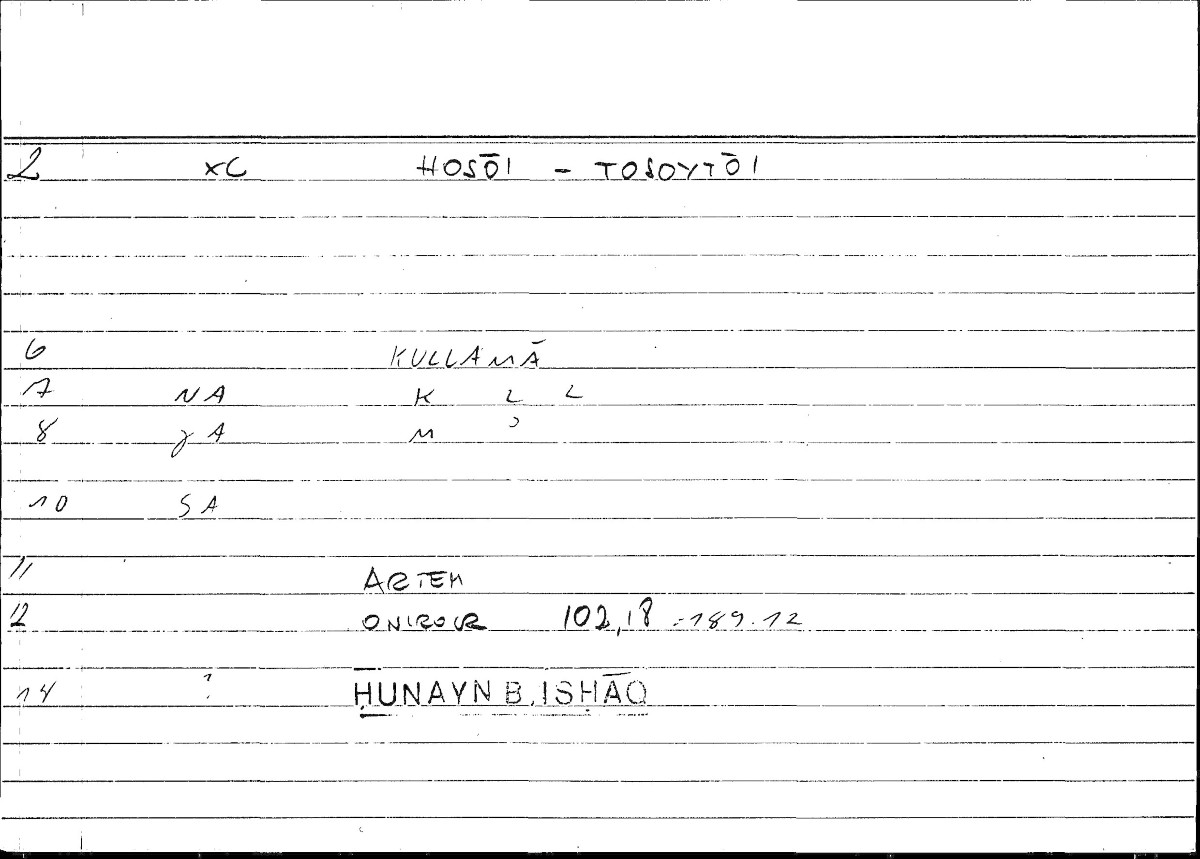 2 xC HOSŌI - TOSOYTŌI
6 KULLAMĀ
7 NA K L L
8 jA M ʾ
10 SA
11 ARTEM
12 ONIROCR 102,18 -189.12
14 ? ḤUNAYN B. ISḤĀQ